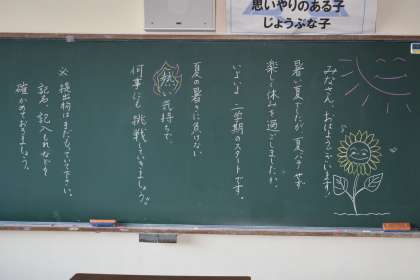 思いやりのある子
じょうぶな子
みなさん、おはようございます!
暑い夏でしたが、夏バテせず
楽しい休みを過ごしましたか。
いよいよ 二学期のスタートです。
夏の暑さに負けない
熱い気持ちで、
何事にも 挑戦していきましょう。
※提出物はまだもっていて下さい。
記名、記入もれなどを
確かめておきましょう。